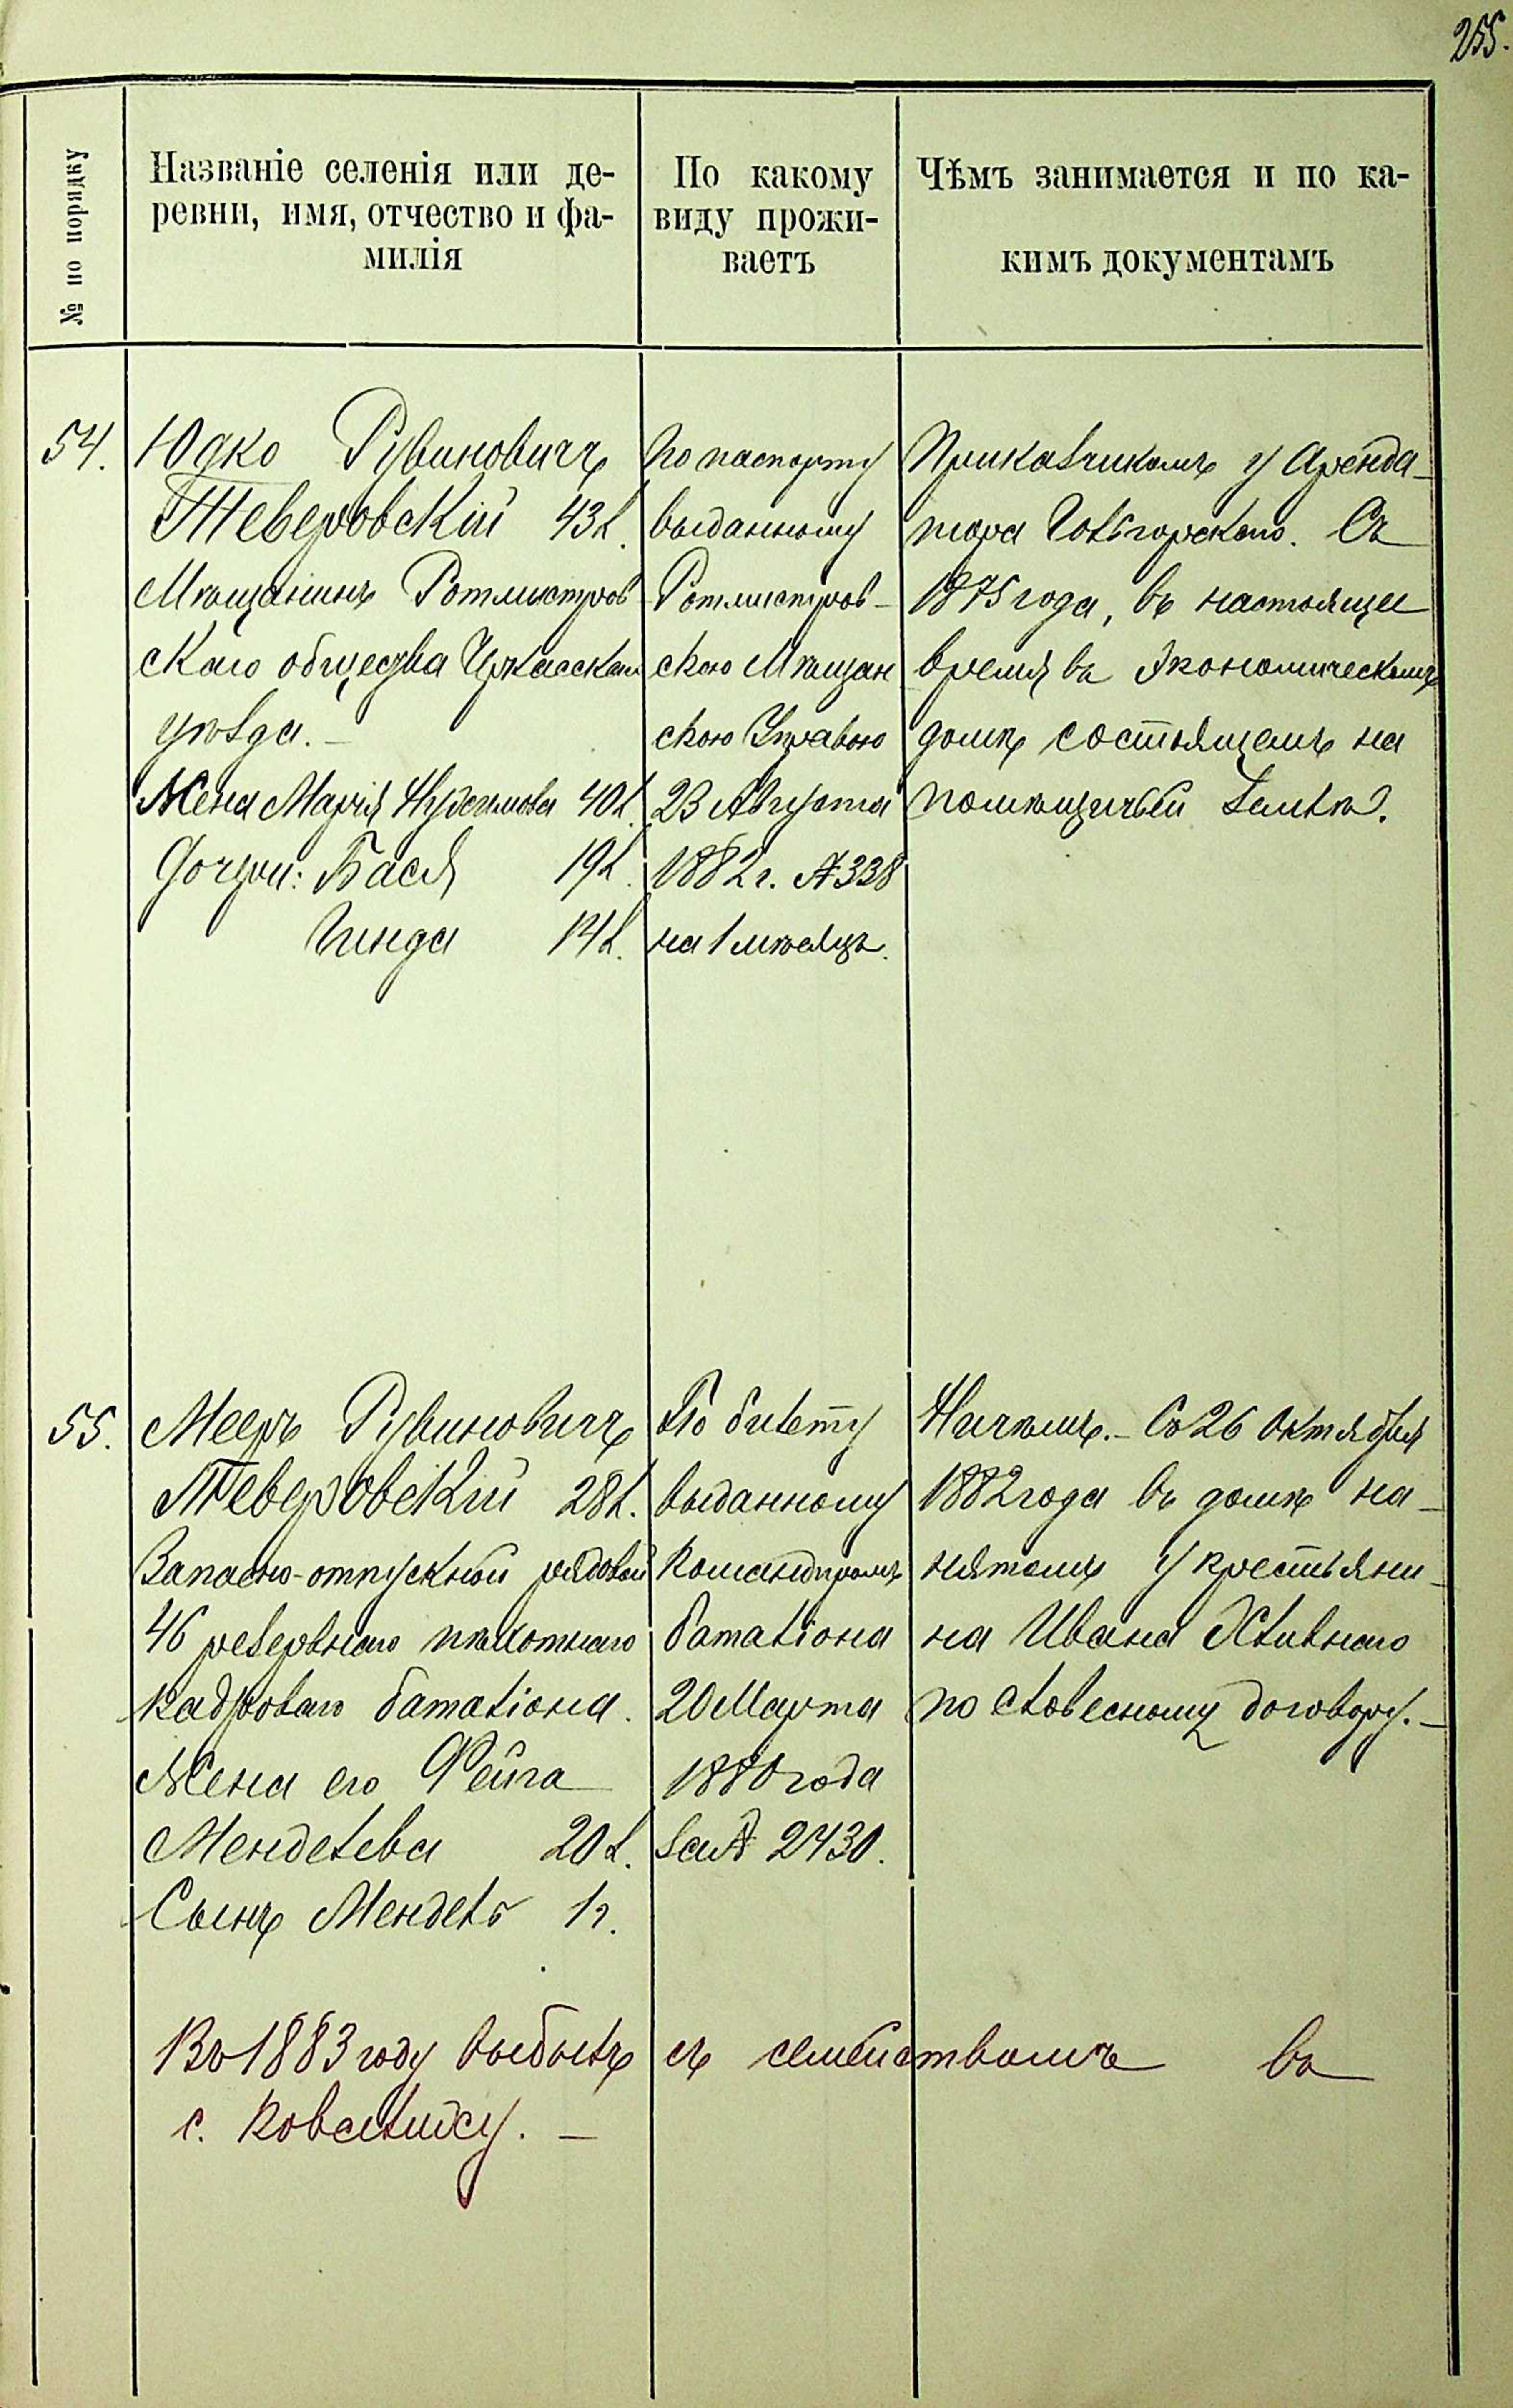 255.
№ по порядку
Названіе селенія или де-
ревни, имя, отчество и фа-
милія
По какому
виду прожи-
ваетъ
Чѣмъ занимается и по ка-
кимъ документамъ
54.
Юдко Рувиновичъ
Теверовскій 43 л.
Мѣщанинъ Ротмистров
скаго общества Черкасскаго
уѣзда. –
Жена Марія 40 л.
Дочери: Бася 19 л.
Гинда 14 л.
По паспорту
выданному
Ротмистров-
скою Мѣщан
скою Управою
23 Августа
1882 г. № 338
на 1 мѣсяцъ.
Приказчикомъ у Аренда-
тора. Съ
1875 года, въ настоящее
время въ Экономическомъ
домѣ состоящемъ на
помѣщичьей землѣ.
55.
Мееръ Рувиновичъ
Теверовскій 28 л.
Запасно-отпускной рядовой
46 резервнаго пѣхотнаго
кадроваго баталіона.
Жена его Фейга
Менделева 20 л.
Сынъ Мендель 1 г.
По билету
выданному
Командиромъ
баталіона
20 Марта
1880 года
за № 2430.
Ничѣмъ. – Съ 26 Октября
1882 года въ домѣ на-
нятомъ у крестьяни-
на Ивана
по словесному договору. –
Въ 1883 году выбылъ съ семействомъ въ
с. Ковалиху. –